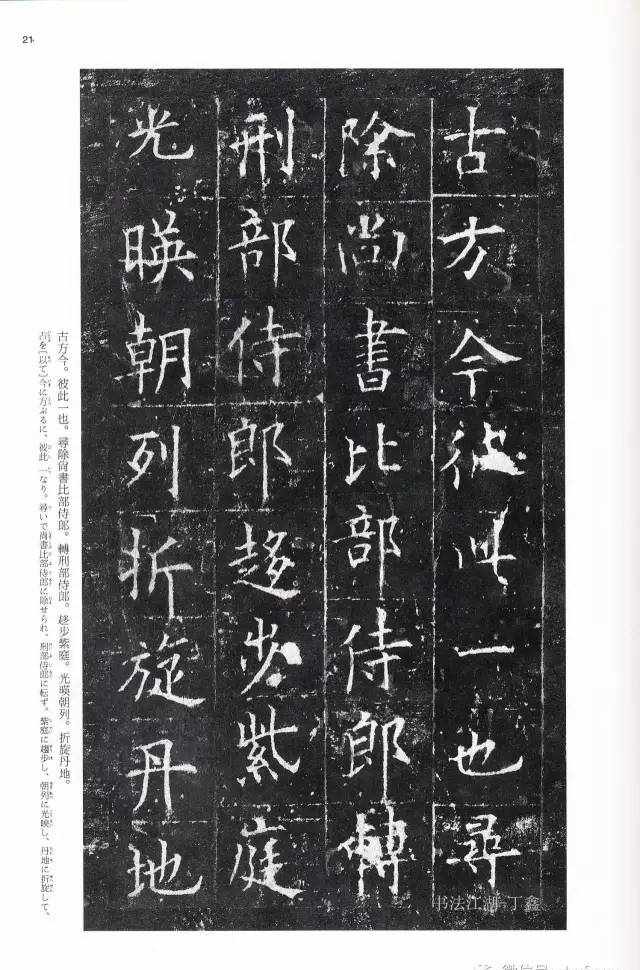 21
古方今彼此一也尋
除尚書比部侍郎轉
刑部侍郎趍步紫庭
光暎朝列折旋丹地
古方今。彼此一也。尋除尙書比部侍郎。轉刑部侍郎。趍步紫庭。光暎朝列。折旋丹地。
古を(以て)今に方ぶるに、彼此一なり。尋いで尚書比部侍郎に除せられ、刑部侍郎に転ず。紫庭に趨步し、朝列に光映し、丹地に折旋して、
书法江湖 丁鑫